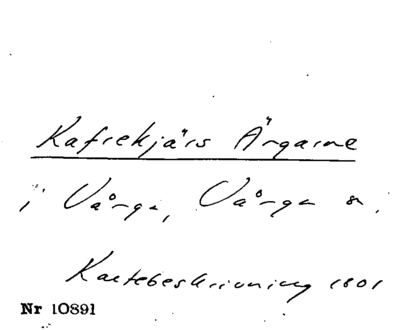 Kafrekjärs Ärgarne
i Vånga, Vånga s.
Kartebeskrivning 1801
Nr 10891